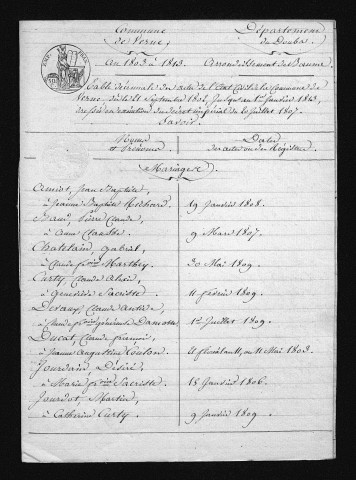 Commune
de Verne,
Département
du Doubs.
An 1803 à 1813.
Arrondissement de Baume
Table décennale des actes de l'Etat Civil de la Commune de
Verne depuis le 21 Septembre 1802, jusqu'au 1er Janvier 1813,
dressée en exécution du décret impérial du 20 juillet 1807.
Savoir.
Noms
et Prénoms
Dates
des actes ou des Registres
Mariages.
Amiot, Jean Baptiste,
à Jeanne Baptiste
19 Janvier 1808.
Pierre Claude,
à Anne
9 Mars 1807.
Chatelain, Gabriel,
à Claude Marthey.
30 Mai 1809.
Curty, Claude Alexis,
à Geneviève Sacriste.
11 Février 1809.
Devaux, Claude Antoine,
à
1er Juillet 1809.
Ducat, Claude françois,
à Jeanne Augustine Coulon.
21 floréal an 11, ou 11 Mai 1803.
Jourdain, Désiré,
à Marie Sacriste.
15 Janvier 1806.
Jourdot, Martin,
à Catherine Curty.
9 Janvier 1809.